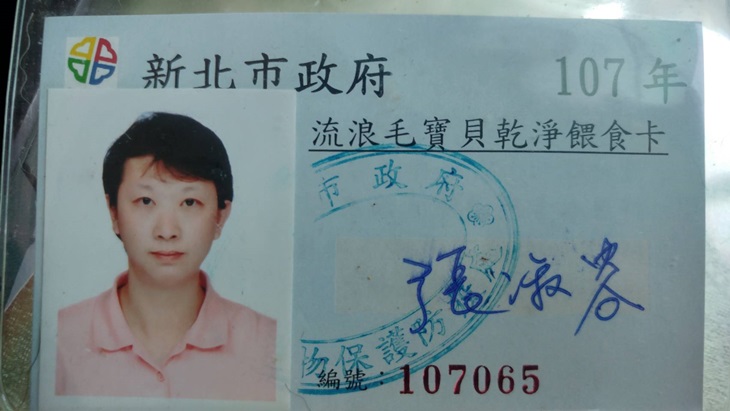 新北市政府 107年
流浪毛寶貝乾淨餵食卡
市政府
張淑容
物保護防
編號：107065